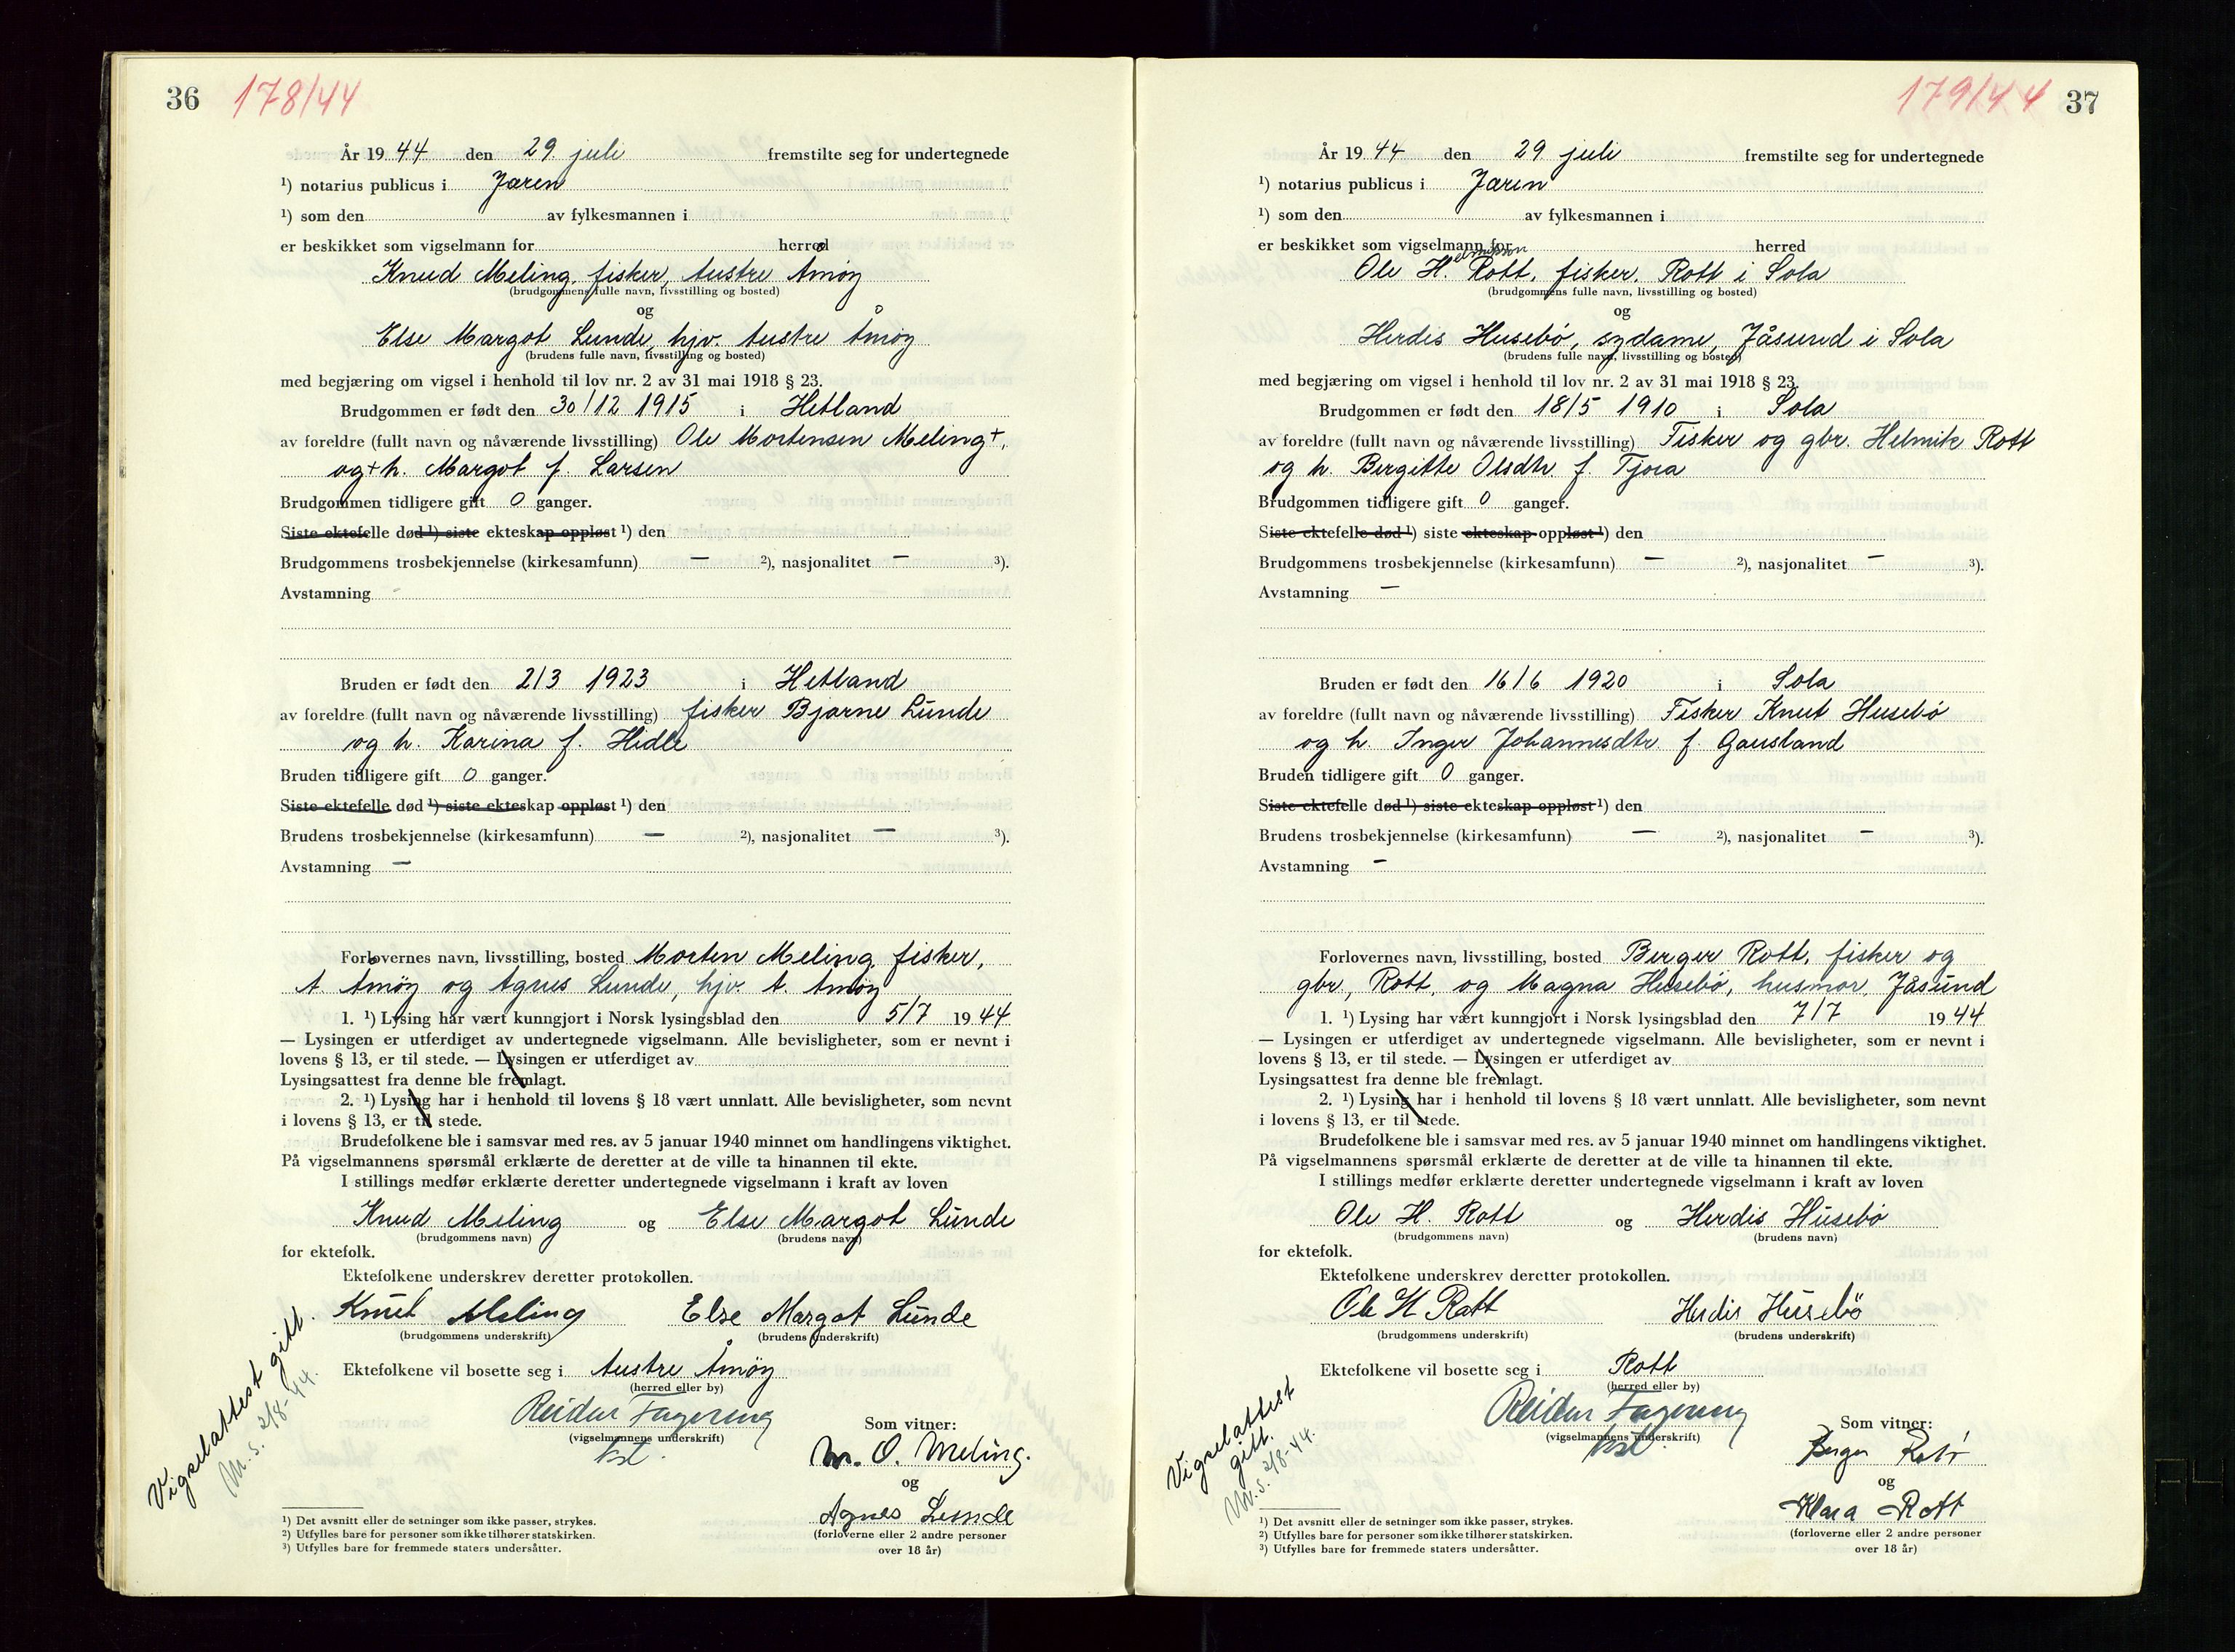 36 178/44
År 1944 den 29. juli fremstilte seg for undertegnede
¹) notarius publicus i Jæren
¹) som den av fylkesmannen i
er beskikket som vigselmann for herred
Knud Meling, fisker, Austre Åmøy
(brudgommens fulle navn, livsstilling og bosted)
og
Else Margot Lunde, hjv. Austre Åmøy
(brudens fulle navn, livsstilling og bosted)
med begjæring om vigsel i henhold til lov nr. 2 av 31 mai 1918 § 23.
Brudgommen er født den 30/12 1915 i Hetland
av foreldre (fullt navn og nåværende livsstilling) Ole Mortensen Meling+,
og + h. Margot f. Larsen
Brudgommen tidligere gift 0 ganger.
Siste ektefelle død ¹) siste ekteskap oppløst ¹) den
Brudgommens trosbekjennelse (kirkesamfunn) — ²), nasjonalitet — ³).
Avstamning -
Bruden er født den 2/3 1923 i Hetland
av foreldre (fullt navn og nåværende livsstilling) fisker Bjarne Lunde
og h. Karina f. Hidle
Bruden tidligere gift 0 ganger.
Siste ektefelle død ¹) siste ekteskap oppløst ¹) den
Brudens trosbekjennelse (kirkesamfunn) — ²), nasjonalitet — ³).
Avstamning —
Forlovernes navn, livsstilling, bosted Morten Meling, fisker,
A. Åmøy og Agnes Lunde, hjv. A. Åmøy
1. ¹) Lysing har vært kunngjort i Norsk lysingsblad den 5/7 1944
— Lysingen er utferdiget av undertegnede vigselmann. Alle bevisligheter, som er nevnt i
lovens § 13, er til stede. — Lysingen er utferdiget av
Lysingsattest fra denne ble fremlagt.
2. ¹) Lysing har i henhold til lovens § 18 vært unnlatt. Alle bevisligheter, som nevnt
i lovens § 13, er til stede.
Brudefolkene ble i samsvar med res. av 5 januar 1940 minnet om handlingens viktighet.
På vigselmannens spørsmål erklærte de deretter at de ville ta hinannen til ekte.
I stillings medfør erklærte deretter undertegnede vigselmann i kraft av loven
Knud Meling og Else Margot Lunde
(brudgommens navn) (brudens navn)
for ektefolk.
Ektefolkene underskrev deretter protokollen.
Knut Meling Else Margot Lunde
(brudgommens underskrift) (brudens underskrift)
Ektefolkene vil bosette seg i Austre Åmøy
(herred eller by)
Reidar Fagereng
(vigselmannens underskrift)
Som vitner:
M. O. Meling.
og
Agnes Lunde
(forloverne eller 2 andre personer
over 18 år)
Vigselattest gitt.
M.S. 2/8-44.
¹) Det avsnitt eller de setninger som ikke passer, strykes.
²) Utfylles bare for personer som ikke tilhører statskirken.
³) Utfylles bare for fremmede staters undersåtter.
179/44 37
År 1944 den 29 juli fremstilte seg for undertegnede
¹) notarius publicus i Jæren
¹) som den av fylkesmannen i
er beskikket som vigselmann for herred
Ole H. Rott, fisker, Rott i Sola
(brudgommens fulle navn, livsstilling og bosted)
og
Herdis Husebö, sydame, Jåsund i Sola
(brudens fulle navn, livsstilling og bosted)
med begjæring om vigsel i henhold til lov nr. 2 av 31 mai 1918 § 23.
Brudgommen er født den 18/5 1910 i Sola
av foreldre (fullt navn og nåværende livsstilling) Fisker og gbr. Helmik Rott
og h. Bergitte Olsdtr. f. Tjora
Brudgommen tidligere gift 0 ganger.
Siste ektefelle død ¹) siste ekteskap oppløst ¹) den
Brudgommens trosbekjennelse (kirkesamfunn) — ²), nasjonalitet — ³).
Avstamning —
Bruden er født den 16/6 1920 i Sola
av foreldre (fullt navn og nåværende livsstilling) Fisker Knut Husebö
og h. Inger Johannesdtr. f. Gausland
Bruden tidligere gift 0 ganger.
Siste ektefelle død ¹) siste ekteskap oppløst ¹) den
Brudens trosbekjennelse (kirkesamfunn) — ²), nasjonalitet — ³).
Avstamning -
Forlovernes navn, livsstilling, bosted Berger Rott, fisker og
gbr, Rott, og Magna Husebö, husmor, Jåsund
1. ¹) Lysing har vært kunngjort i Norsk lysingsblad den 7/7 1944
— Lysingen er utferdiget av undertegnede vigselmann. Alle bevisligheter, som er nevnt i
lovens § 13, er til stede. — Lysingen er utferdiget av
Lysingsattest fra denne ble fremlagt.
2. ¹) Lysing har i henhold til lovens § 18 vært unnlatt. Alle bevisligheter, som nevnt
i lovens § 13, er til stede.
Brudefolkene ble i samsvar med res. av 5 januar 1940 minnet om handlingens viktighet.
På vigselmannens spørsmål erklærte de deretter at de ville ta hinannen til ekte.
I stillings medfør erklærte deretter undertegnede vigselmann i kraft av loven
Ole H. Rott og Herdis Husebö
(brudgommens navn) (brudens navn)
for ektefolk.
Ektefolkene underskrev deretter protokollen.
Ole H Rott Herdis Husebö
(brudgommens underskrift) (brudens underskrift)
Ektefolkene vil bosette seg i Rott
(herred eller by)
Reidar Fagereng
(vigselmannens underskrift)
Som vitner:
Berger Rott
og
Klara Rott
(forloverne eller 2 andre personer
over 18 år)
Vigselattest
gitt.
M.S. 2/8-44.
¹) Det avsnitt eller de setninger som ikke passer, strykes.
²) Utfylles bare for personer som ikke tilhører statskirken.
³) Utfylles bare for fremmede staters undersåtter.